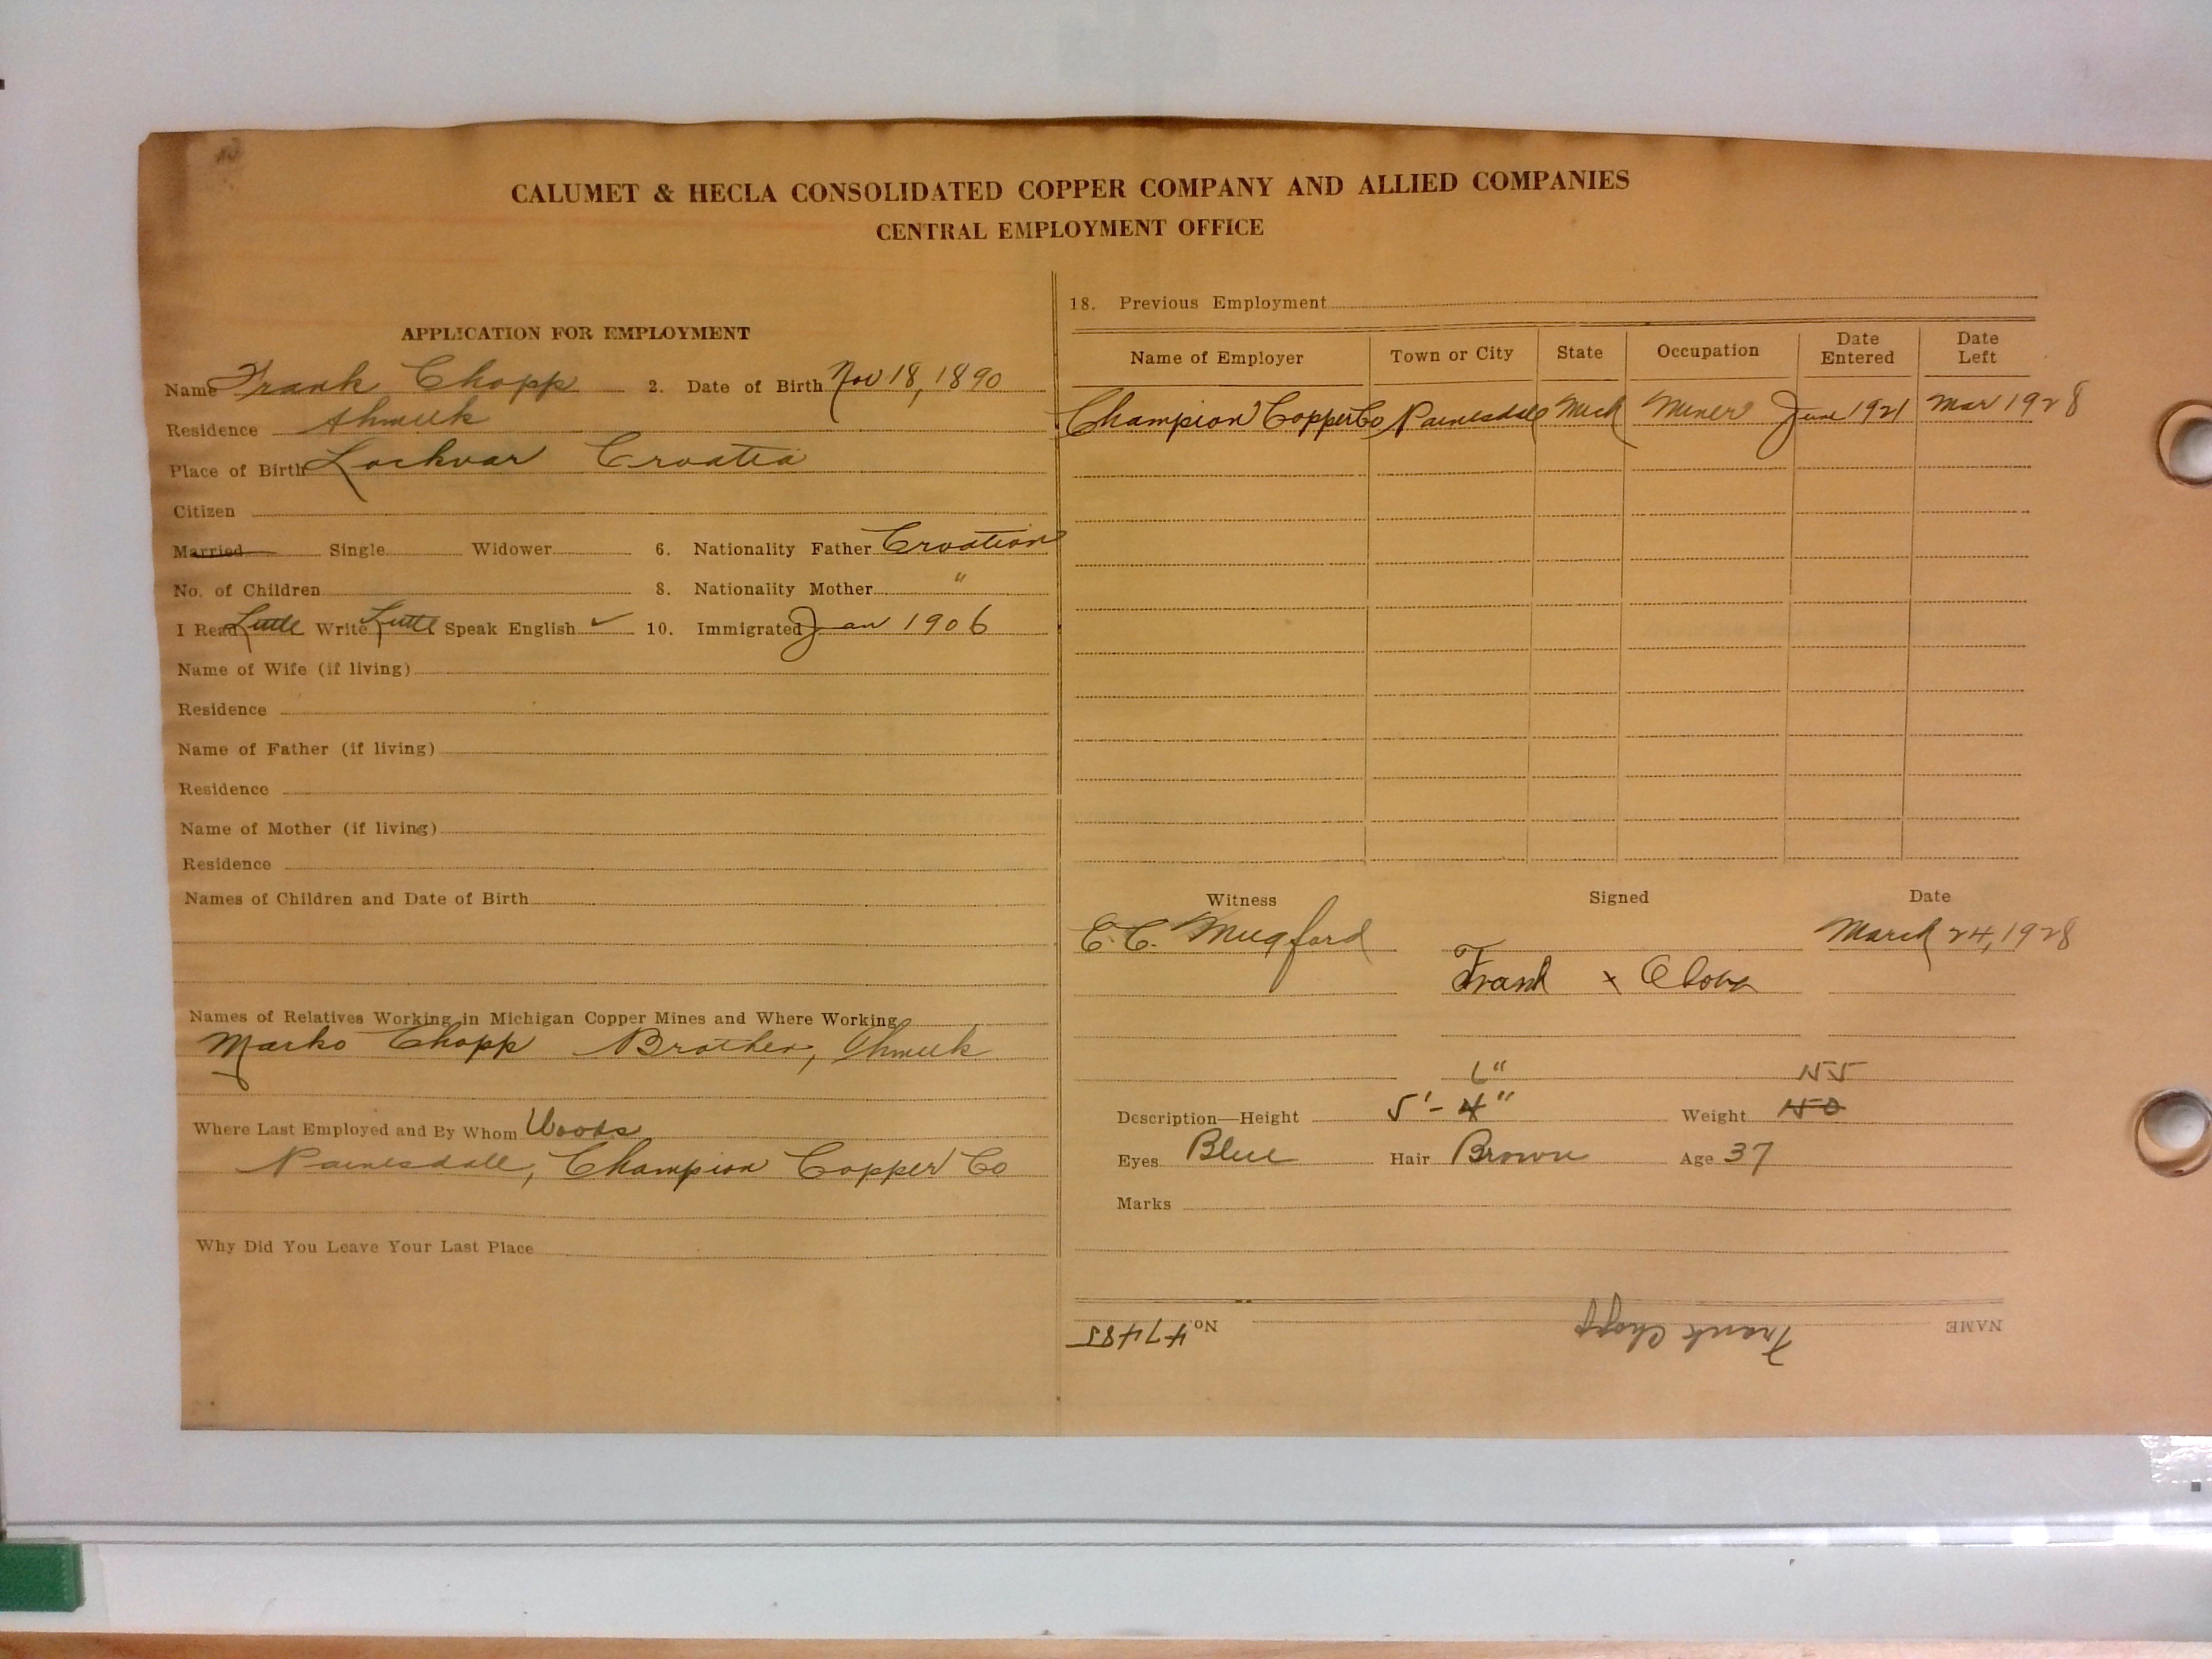 CALUMET & HECLA CONSOLIDATED COPPER COMPANY AND ALLIED COMPANIES
CENTRAL EMPLOYMENT OFFICE
APPLICATION FOR EMPLOYMENT
Name Frank Chopp 2. Date of Birth Nov 18, 1890
Residence Ahmeek
Place of Birth Lockvar Croatia
Citizen
Married Single Widower 6. Nationality Father Croation
No. of Children 8. Nationality Mother "
I Read Little Write Little Speak English ✓ 10. Immigrated Jan 1906
Name of Wife (if living)
Residence
Name of Father (if living)
Residence
Name of Mother (if living)
Residence
Names of Children and Date of Birth
Names of Relatives Working in Michigan Copper Mines and Where Working
Marko Chopp Brother, Ahmeek
Where Last Employed and By Whom Woods
Painesdale, Champion Copper Co
Why Did You Leave Your Last Place
18. Previous Employment
Name of Employer Town or City State Occupation Date Entered Date Left
Champion Copper Co Painesdale Mich Miner June 1921 Mar 1928
Witness Signed Date
E. C. Mugford March 24, 1928
Frank x
6" 155
Description—Height 5'-4" Weight 150
Eyes Blue Hair Brown Age 37
Marks
NAME Frank Chopp No 47485